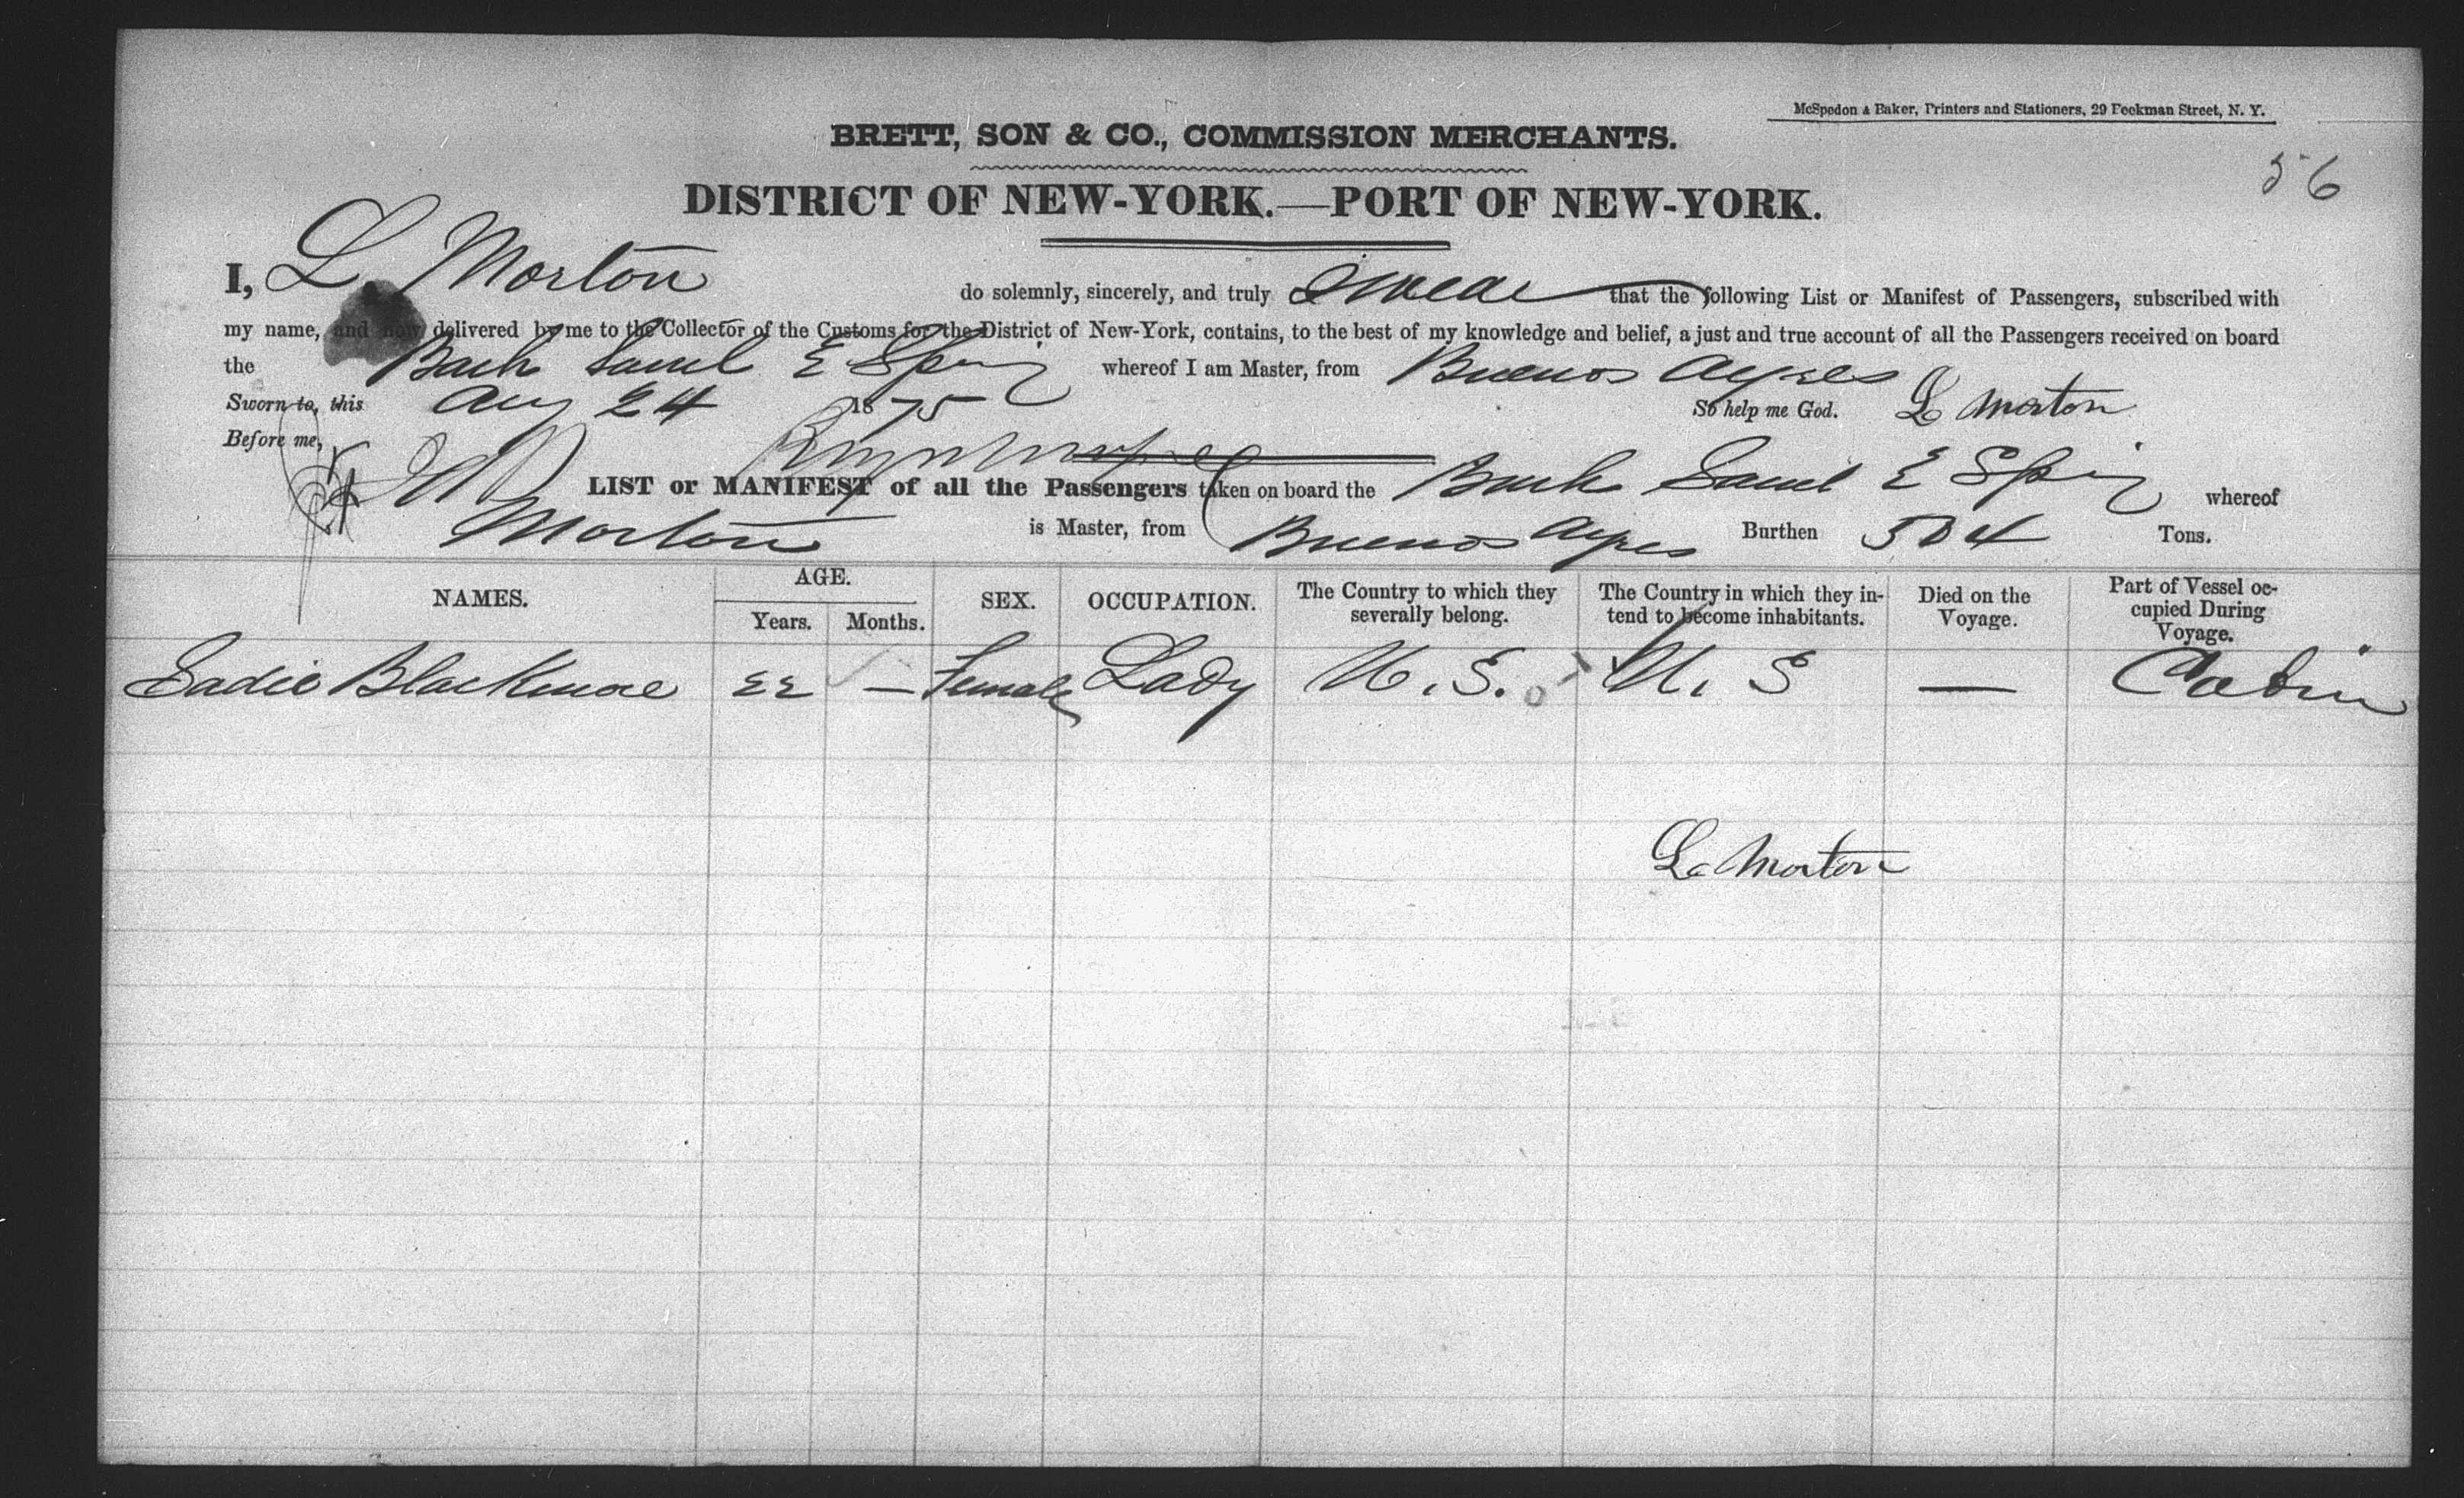 McSpedon & Baker, Printers and Stationers, 29 Beekman Street, N. Y.
BRETT, SON & CO., COMMISSION MERCHANTS.
56
DISTRICT OF NEW-YORK.—PORT OF NEW-YORK.
I, L Morton do solemnly, sincerely, and truly Swear that the following List or Manifest of Passengers, subscribed with
my name, and now delivered by me to the Collector of the Customs for the District of New-York, contains, to the best of my knowledge and belief, a just and true account of all the Passengers received on board
the Bark Saml E Spring whereof I am Master, from Buenos Ayres
Sworn to, this Aug 24 1875 So help me God. L Morton
Before me,
LIST or MANIFEST of all the Passengers taken on board the Bark Saml E Spring whereof
Morton is Master, from Buenos Ayres Burthen 504 Tons.
NAMES. AGE. Years. Months. SEX. OCCUPATION. The Country to which they severally belong. The Country in which they intend to become inhabitants. Died on the Voyage. Part of Vessel occupied During Voyage.
Sadie Blackmore 22 — Female Lady U.S. U.S — Cabin
L Morton